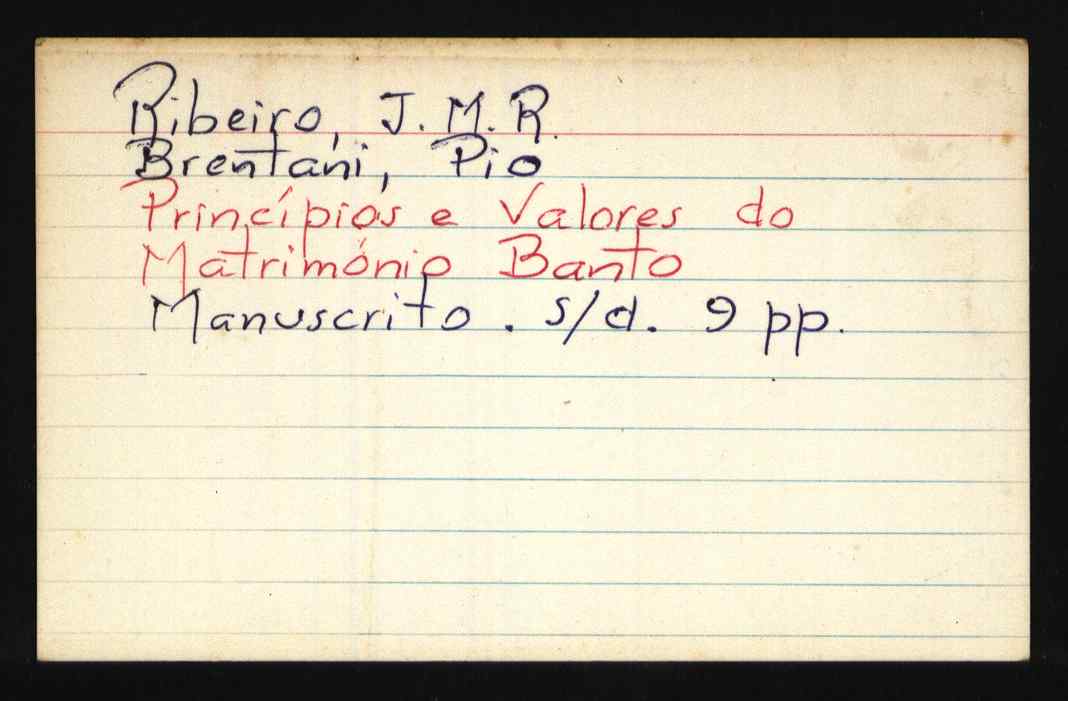 Ribeiro, J. M. R.
Brentani, Pio
Princípios e Valores do
Matrimónio Banto
Manuscrito. s/d. 9 pp.